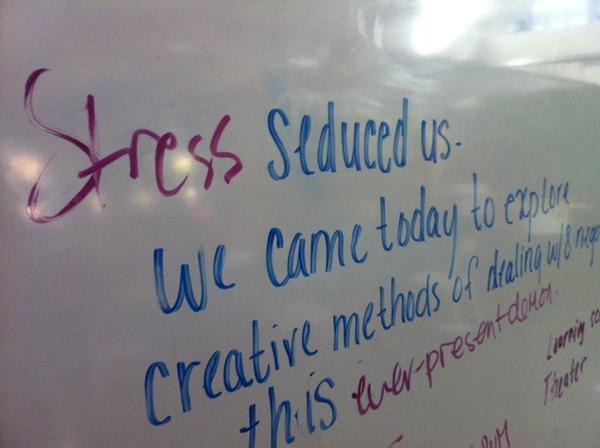 Stress Seduced us.
We came today to explore
creative methods of dealing w/ &
this ever-present demon.
Learning
Theater